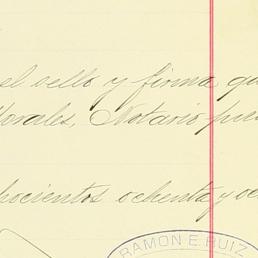 el sello y firma que
Morales, Notario pu
hocientos ochenta y oc
RAMON E. RUIZ